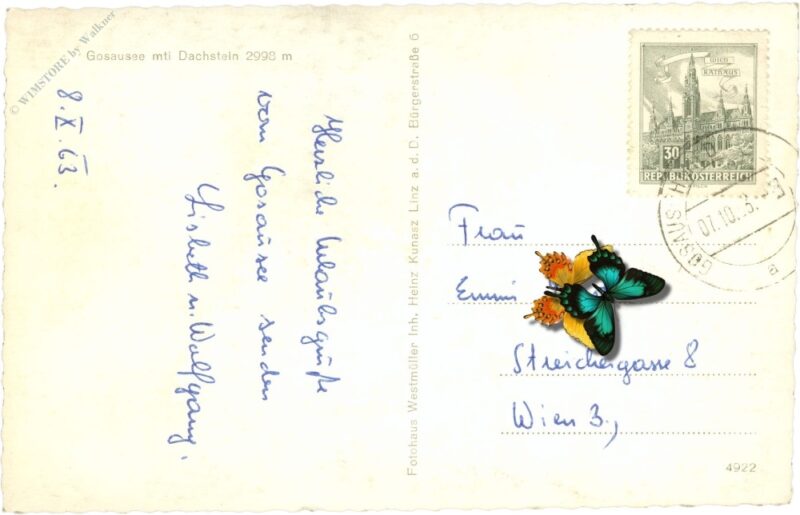 © WIMSTORE by Walkner
Gosausee mti Dachstein 2998 m
8. X. 63.
Herzliche Urlaubsgrüße
vom Gosausee senden
Lisbeth u. Wolfgang.
Fotohaus Westmüller Inh. Heinz Kunasz Linz a.d.D. Bürgerstraße 6
WIEN
RATHAUS
30
REPUBLIK ÖSTERREICH
GOSAUS
07.10.
Frau
Emmi
Streichergasse 8
Wien 3.,
4922